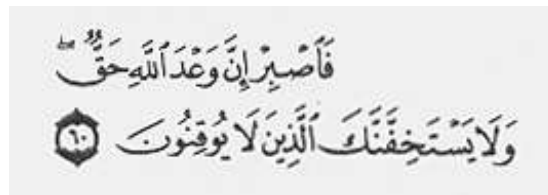 فَٱصۡبِرۡ إِنَّ وَعۡدَ ٱللَّهِ حَقّٞۖ
وَلَا يَسۡتَخِفَّنَّكَ ٱلَّذِينَ لَا يُوقِنُونَ ٦٠